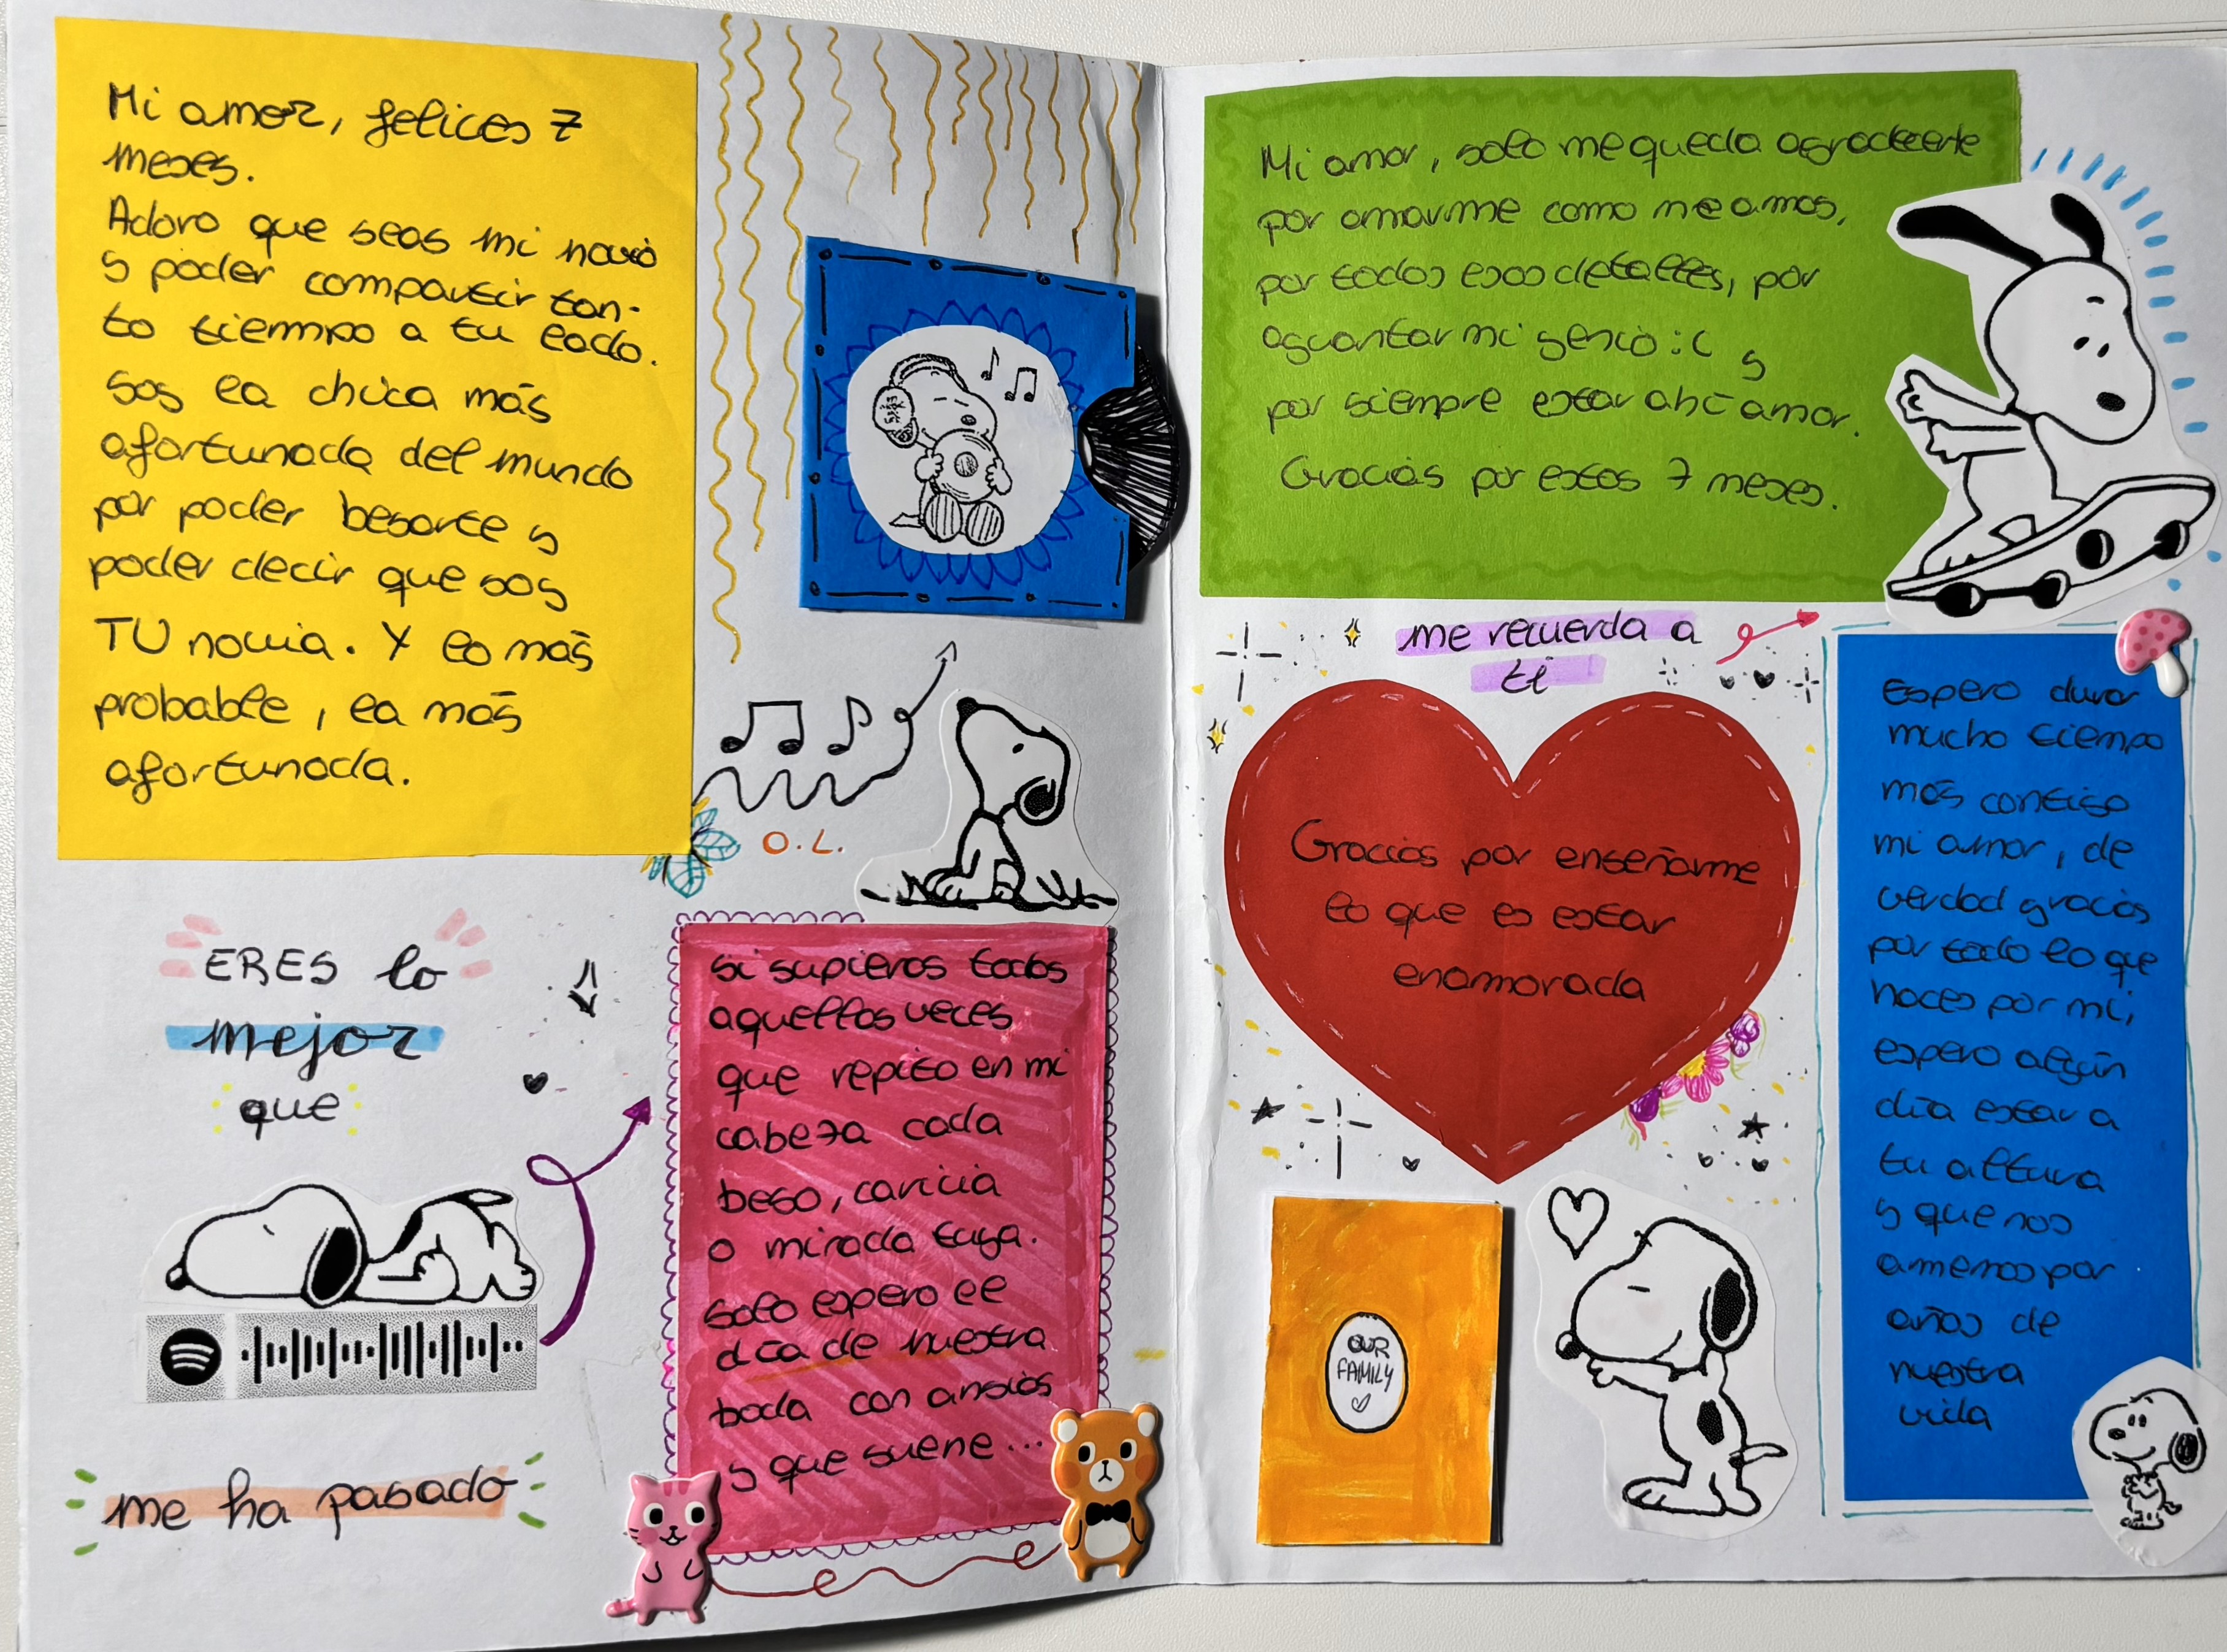 Mi amor, felices 7
meses.
Adoro que seas mi novio
y poder compartir tan-
to tiempo a tu lado.
Soy la chica más
afortunada del mundo
por poder besarte y
poder decir que soy
TU novia. Y lo más
probable, la más
afortunada.
O.L.
ERES lo
mejor
que
me ha pasado
si supieras todas
aquellas veces
que repito en mi
cabeza cada
beso, caricia
o mirada tuya.
solo espero el
día de nuestra
boda con ansias
y que suene...
Mi amor, solo me queda agradecerte
por amarme como me amas,
por todos esos detalles, por
aguantar mi genio :( y
por siempre estar ahí amor.
Gracias por estos 7 meses.
me recuerda a
ti
Gracias por enseñarme
lo que es estar
enamorada
OUR
FAMILY
Espero durar
mucho tiempo
más contigo
mi amor, de
verdad gracias
por todo lo que
haces por mi,
espero algún
día estar a
tu altura
y que nos
amemos por
años de
nuestra
vida